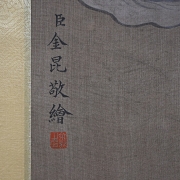 臣金昆敬繪